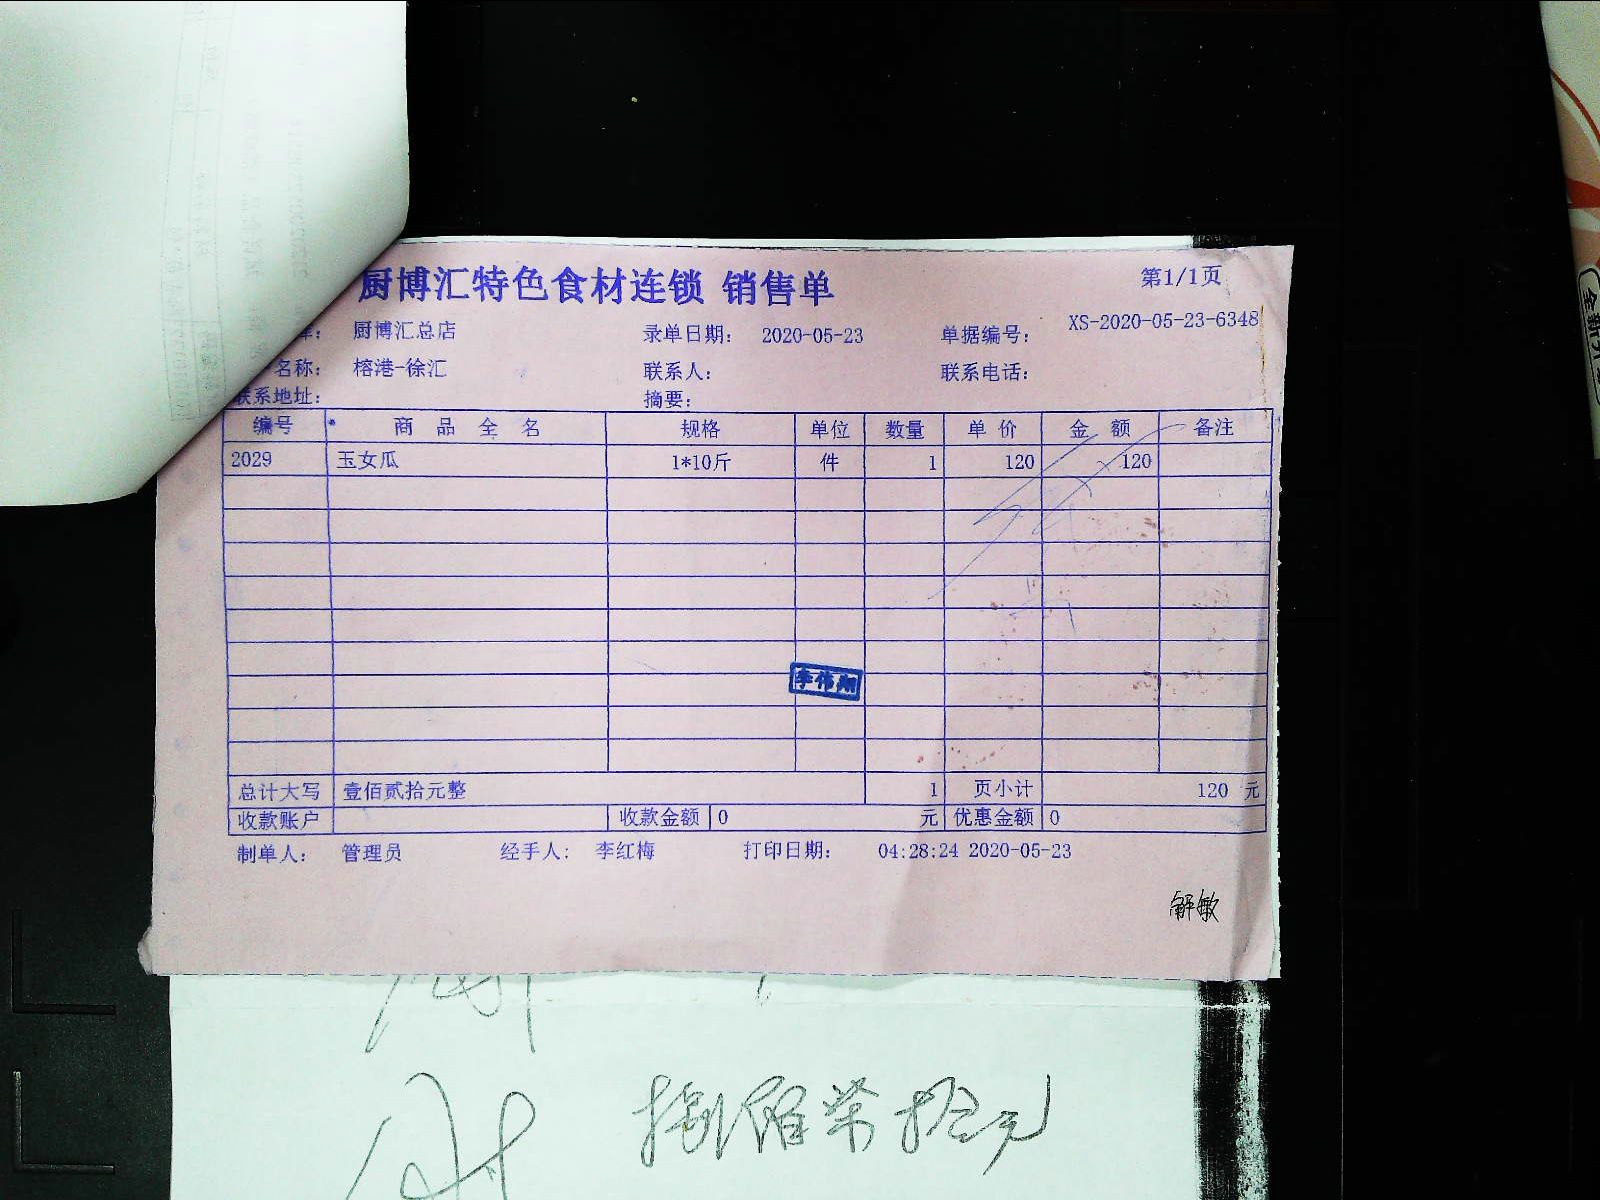 厨博汇特色食材连锁 销售单
第1/1页
库: 厨博汇总店 录单日期: 2020-05-23 单据编号: XS-2020-05-23-6348
名称: 榕港-徐汇 联系人: 联系电话:
联系地址: 摘要:
编号 商品全名 规格 单位 数量 单价 金额 备注
2029 玉女瓜 1*10斤 件 1 120 120
李伟翔
总计大写 壹佰贰拾元整 1 页小计 120 元
收款账户 收款金额 0 元 优惠金额 0
制单人: 管理员 经手人: 李红梅 打印日期: 04:28:24 2020-05-23
解敏
捌佰柒拾元